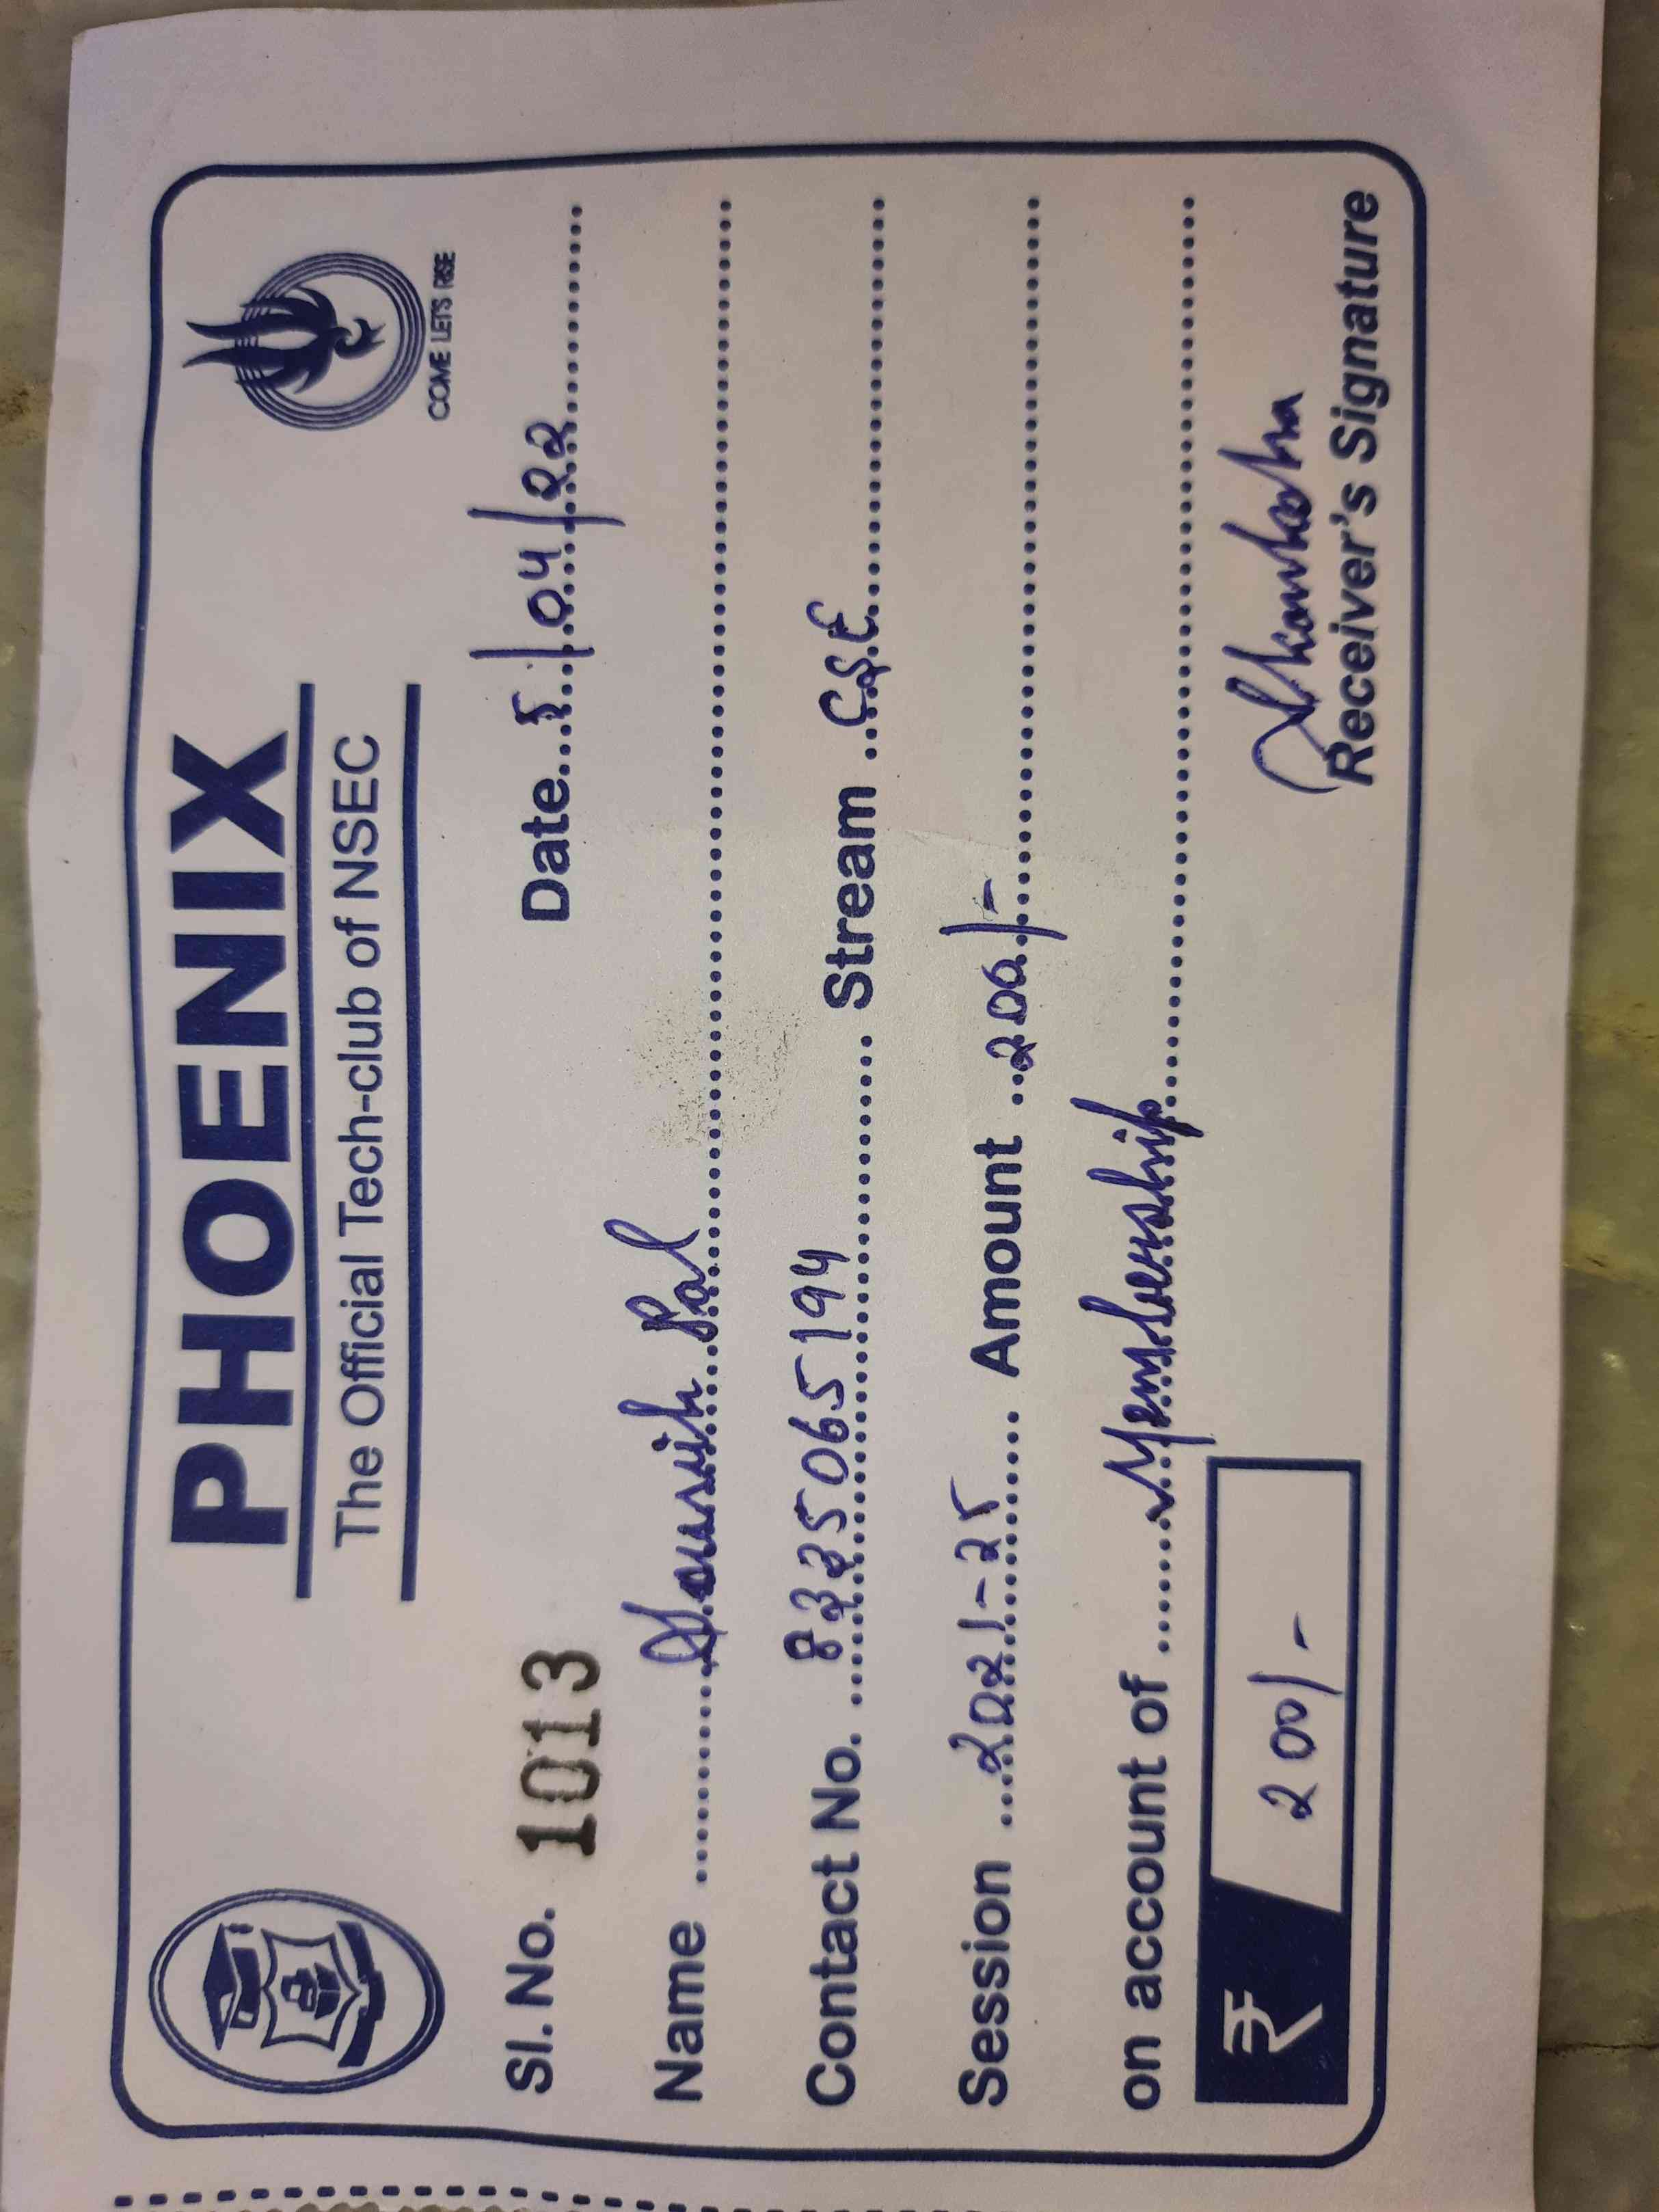 PHOENIX
The Official Tech-club of NSEC
COME LET'S RISE
Sl. No. 1013 Date 5/04/22
Name Sourish Pal
Contact No. 8335065194 Stream C.S.E
Session 2021-25 Amount 200/-
on account of Membership
₹ 200/-
Receiver's Signature